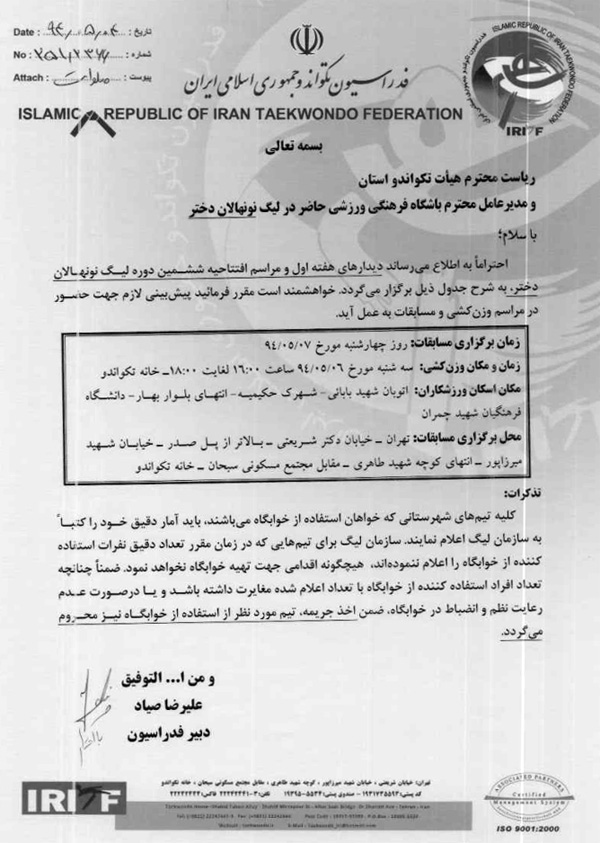 تاریخ : Date : ۹۴/۰۵/۰۴
شماره : No :
پیوست : Attach :
ISLAMIC REPUBLIC OF IRAN TAEKWONDO FEDERATION
IRITF
فدراسیون تکواندو جمهوری اسلامی ایران
ISLAMIC REPUBLIC OF IRAN TAEKWONDO FEDERATION
بسمه تعالی
ریاست محترم هیأت تکواندو استان
و مدیرعامل محترم باشگاه فرهنگی ورزشی حاضر در لیگ نونهالان دختر
با سلام؛
احتراماً به اطلاع می‌رساند دیدارهای هفته اول و مراسم افتتاحیه ششمین دوره لیگ نونهالان
دختر، به شرح جدول ذیل برگزار می‌گردد. خواهشمند است مقرر فرمائید پیش‌بینی لازم جهت حضور
در مراسم وزن‌کشی و مسابقات به عمل آید.
زمان برگزاری مسابقات: روز چهارشنبه مورخ ۹۴/۰۵/۰۷
زمان و مکان وزن‌کشی: سه شنبه مورخ ۹۴/۰۵/۰۶ ساعت ۱۶:۰۰ لغایت ۱۸:۰۰ـ خانه تکواندو
مکان اسکان ورزشکاران: اتوبان شهید بابائی- شهرک حکیمیه- انتهای بلوار بهار- دانشگاه
فرهنگیان شهید چمران
محل برگزاری مسابقات: تهران ـ خیابان دکتر شریعتی ـ بالاتر از پل صدر ـ خیابان شهید
میرزاپور ـ انتهای کوچه شهید طاهری ـ مقابل مجتمع مسکونی سبحان ـ خانه تکواندو
تذکرات:
کلیه تیم‌های شهرستانی که خواهان استفاده از خوابگاه می‌باشند، باید آمار دقیق خود را کتباً
به سازمان لیگ اعلام نمایند. سازمان لیگ برای تیم‌هایی که در زمان مقرر تعداد دقیق نفرات استفاده
کننده از خوابگاه را اعلام ننموده‌اند، هیچگونه اقدامی جهت تهیه خوابگاه نخواهد نمود. ضمناً چنانچه
تعداد افراد استفاده کننده از خوابگاه با تعداد اعلام شده مغایرت داشته باشد و یا درصورت عدم
رعایت نظم و انضباط در خوابگاه، ضمن اخذ جریمه، تیم مورد نظر از استفاده از خوابگاه نیز محروم
می‌گردد.
و من ا... التوفیق
علیرضا صیاد
دبیر فدراسیون
تهران: خیابان شریعتی، خیابان شهید میرزاپور، کوچه شهید طاهری، مقابل مجتمع مسکونی سبحان، خانه تکواندو
IRITF
ASSOCIATED PARTNERS
Certified
Management System
ISO 9001:2000